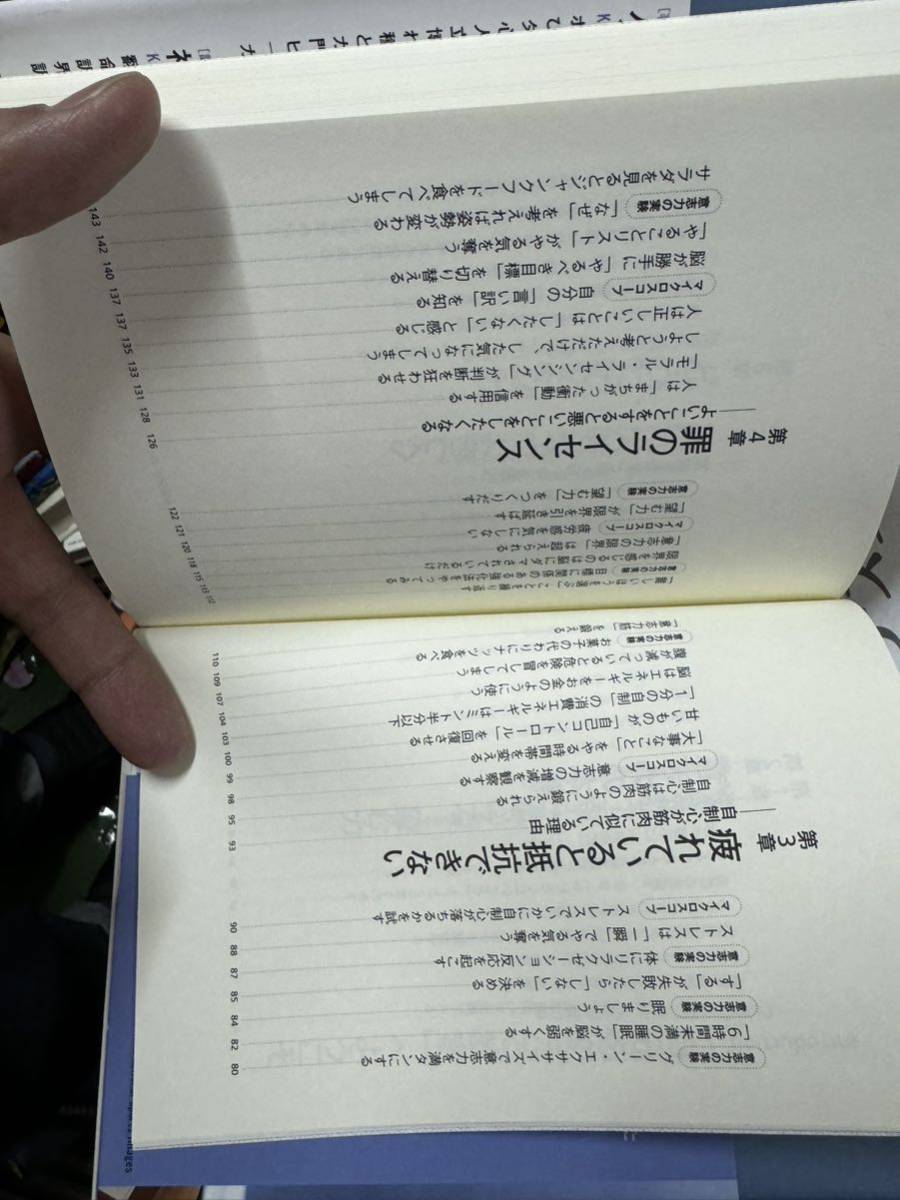 意志力の実験 グリーン・エクササイズで意志力を満タンにする 80
「6時間未満の睡眠」が脳を弱くする 82
意志力の実験 眠りましょう 84
「する」が失敗したら「しない」を決める 85
意志力の実験 体にリラクゼーション反応を起こす 87
ストレスは「一瞬」でやる気を奪う 88
マイクロスコープ ストレスでいかに自制心が落ちるかを試す 90
第3章 疲れていると抵抗できない
——自制心が筋肉に似ている理由 93
自制心は筋肉のように鍛えられる 95
マイクロスコープ 意志力の増減を観察する 98
「大事なこと」をやる時間帯を変える 99
甘いものが「自己コントロール」を回復させる 100
「1分の自制」の消費エネルギーはミント半分以下 103
脳はエネルギーをお金のように使う 104
腹が減っていると危険を冒してしまう 107
意志力の実験 お菓子の代わりにナッツを食べる 109
「意志力筋」を鍛える 110
「難しいほうを選ぶ」ことを繰り返す 112
意志力の実験 目標に関係のある強化法をやってみる 113
限界を感じるのは脳にダマされているだけ 115
「意志力の限界」は超えられる 118
マイクロスコープ 疲労感を気にしない 120
「望む力」が限界を引き延ばす 121
意志力の実験 「望む力」をつくりだす 122
第4章 罪のライセンス
——よいことをすると悪いことをしたくなる 126
人は「まちがった衝動」を信用する 128
「モラル・ライセンシング」が判断を狂わせる 131
しようと考えただけで、した気になってしまう 133
人は正しいことは「したくない」と感じる 135
マイクロスコープ 自分の「言い訳」を知る 137
脳が勝手に「やるべき目標」を切り替える 137
「やることリスト」がやる気を奪う 140
意志力の実験 「なぜ」を考えれば姿勢が変わる 142
サラダを見るとジャンクフードを食べてしまう 143